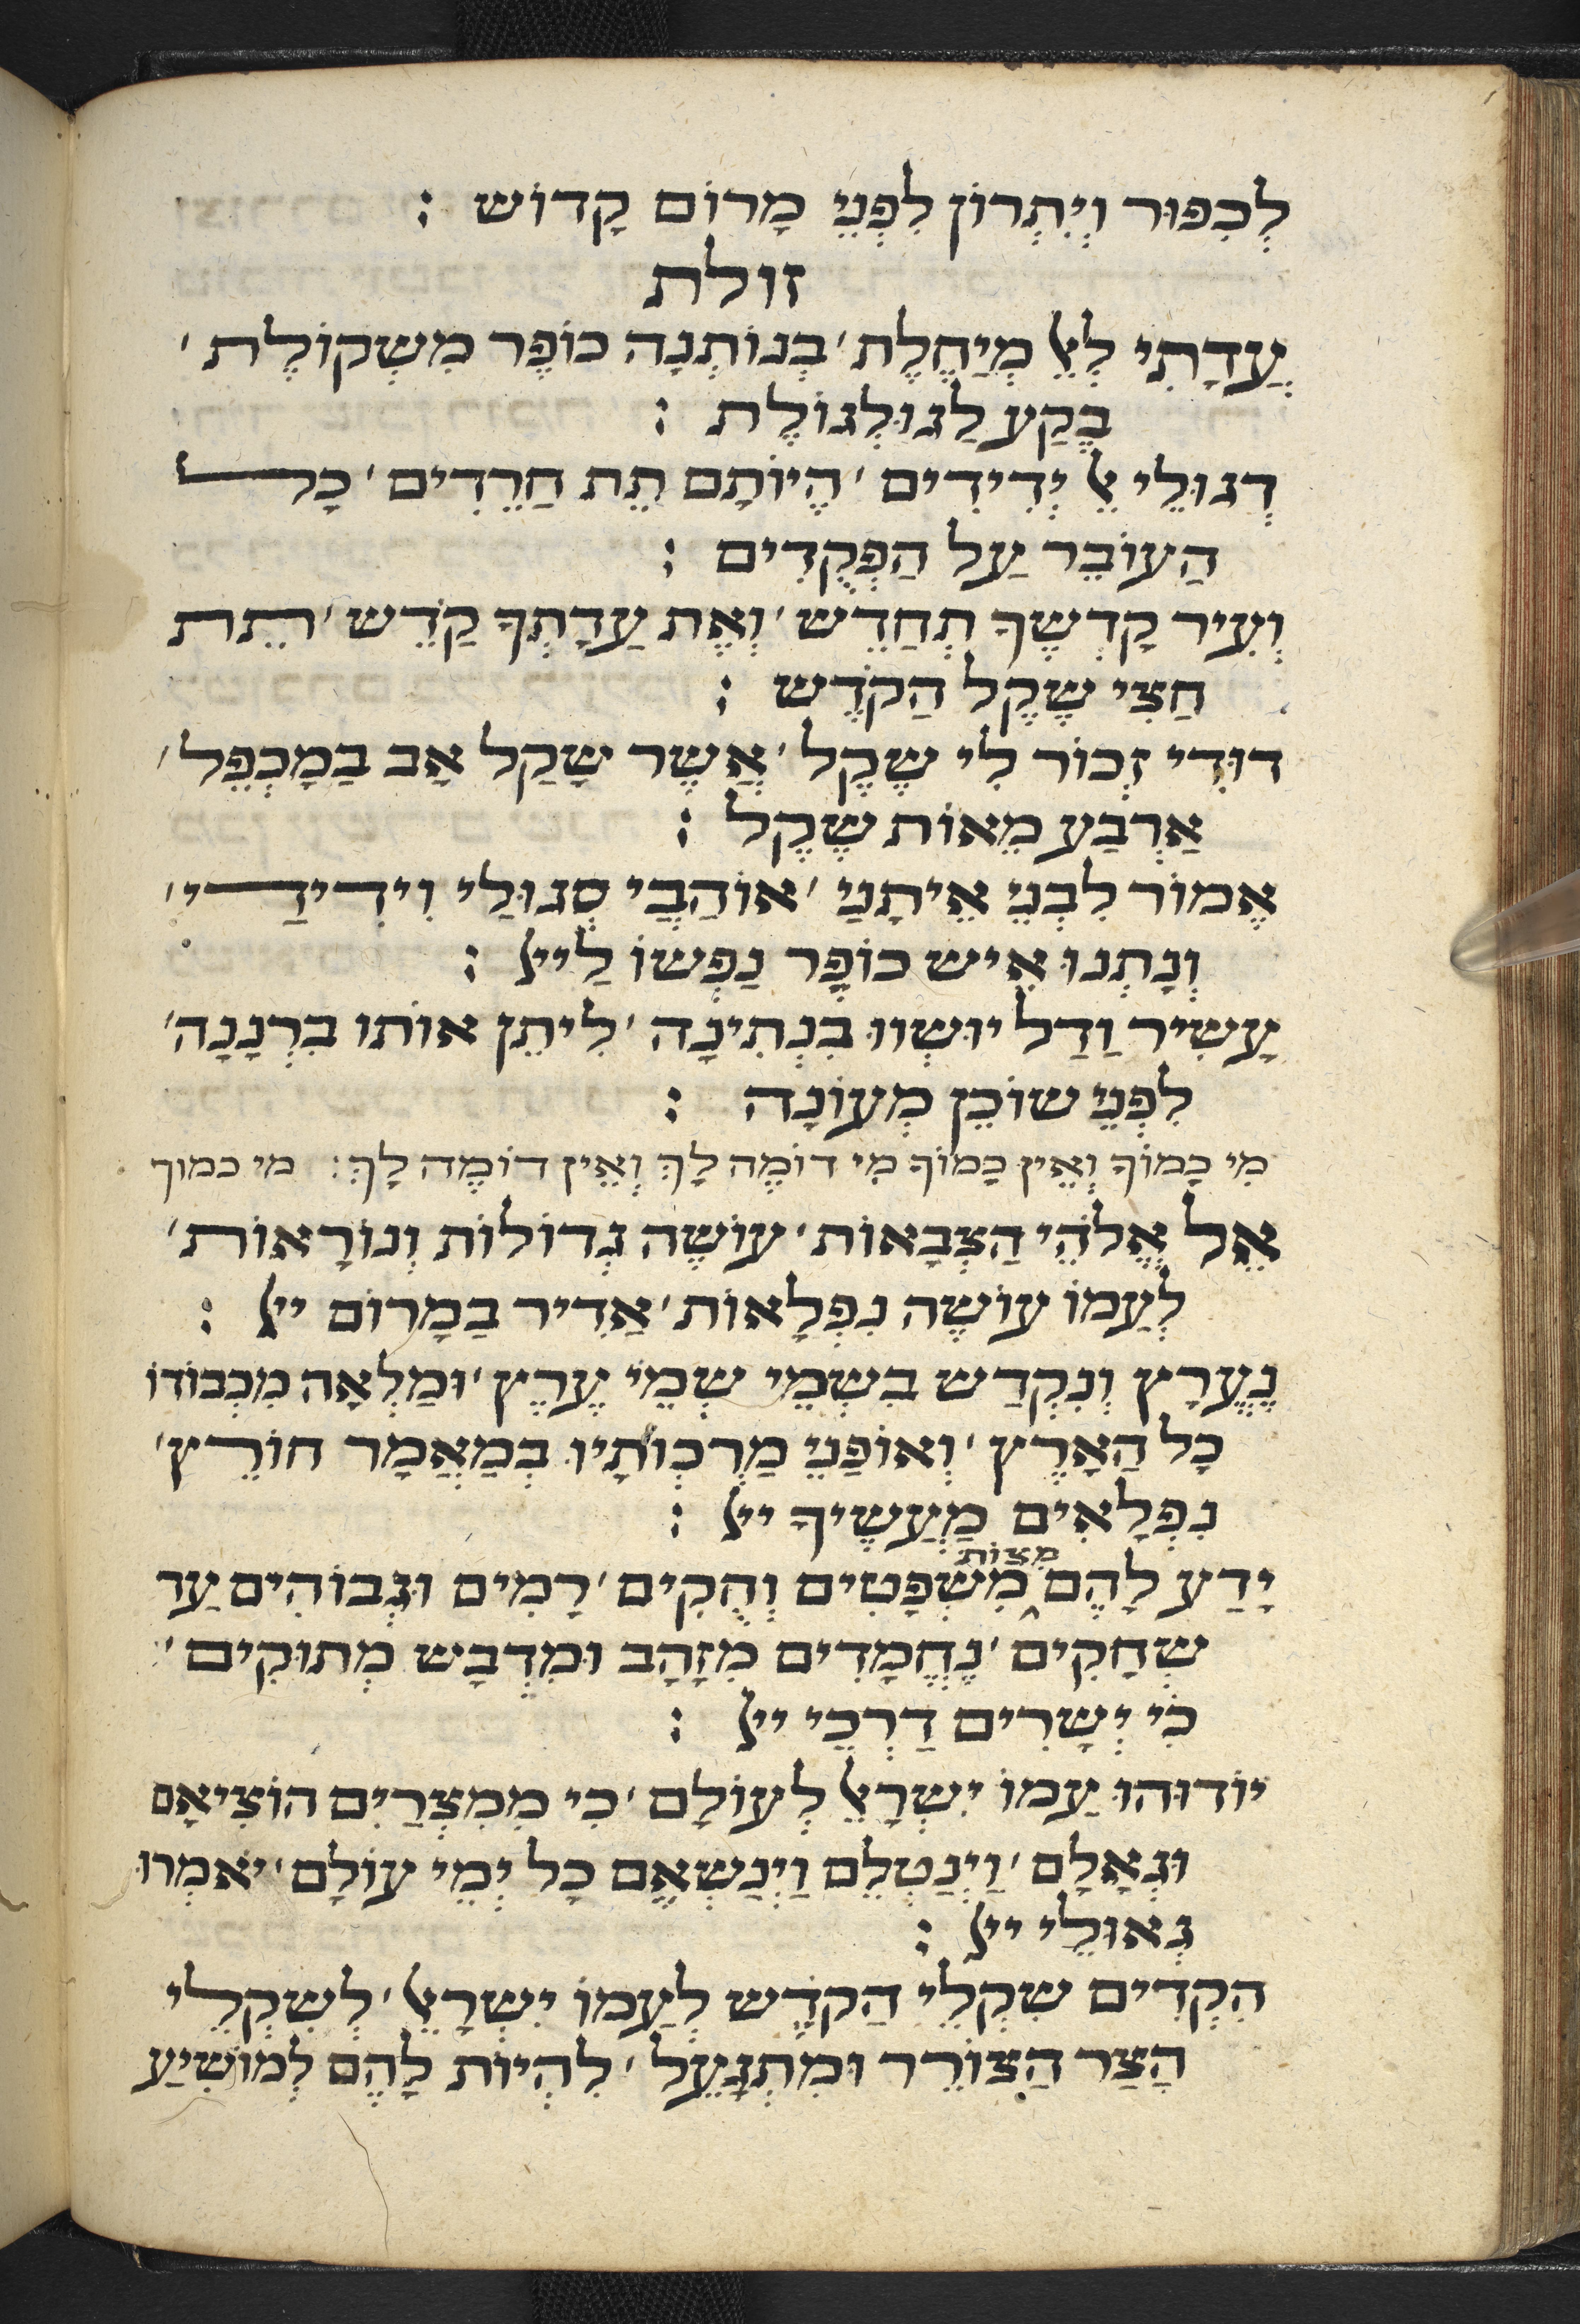 לְכִפּוּר וְיִתְרוֹן לִפְנֵי מָרוֹם קָדוֹשׁ :
זולת
עֲדָתִי לְאֵל מְיַחֶלֶת ׳ בְּנוֹתְנָה כוֹפֶר מִשְׁקוֹלֶת ׳
בֶּקַע לַגּוּלְגּוֹלֶת :
דְּגוּלֵי אֵל יְדִידִים ׳ הֱיוֹתָם תֵּת חֲרֵדִים ׳ כָּל
הָעוֹבֵר עַל הַפְּקֻדִים :
וְעִיר קָדְשֶׁךָ תְחַדֵּשׁ ׳ וְאֶת עֲדָתְךָ קַדֵּשׁ ׳ תֵּת
חֲצִי שֶׁקֶל הַקֹּדֶשׁ :
דּוֹדִי זְכוֹר לִי שֶׁקֶל ׳ אֲשֶׁר שָׁקַל אָב בַּמָּכְפֵּל ׳
אַרְבַּע מֵאוֹת שֶׁקֶל :
אֱמוֹר לִבְנֵי אֵיתָנַי ׳ אוֹהֲבַי סְגוּלַּי וִידִידַי ׳
וְנָתְנוּ אִישׁ כּוֹפֶר נַפְשׁוֹ לַייָ :
עָשִׁיר וָדַל יוּשְׁווּ בִּנְתִינָה ׳ לִיתֵּן אוֹתוֹ בִּרְנָנָה ׳
לִפְנֵי שׁוֹכֵן מְעוֹנָה :
מִי כָּמוֹךָ וְאֵין כָּמוֹךָ מִי דוֹמֶה לָךְ וְאֵין דּוֹמֶה לָךְ : מי כמוך
אֵל אֱלֹהֵי הַצְּבָאוֹת ׳ עוֹשֶׂה גְדוֹלוֹת וְנוֹרָאוֹת ׳
לְעַמּוֹ עוֹשֶׂה נִפְלָאוֹת ׳ אַדִּיר בַּמָּרוֹם ייָ :
נֶעֱרָץ וְנִקְדָּשׁ בִּשְׁמֵי שְׁמֵי עֶרֶץ ׳ וּמָלְאָה מִכְּבוֹדוֹ
כָל הָאָרֶץ ׳ וְאוֹפַנֵּי מַרְכְּוֹתָיו בְּמַאֲמָר חוֹרֵץ ׳
נִפְלָאִים מַעֲשֶׂיךָ ייָ :
יָדַע לָהֶם מִצְוֹת מִשְׁפָּטִים וְחֻקִּים ׳ רָמִים וּגְבוֹהִים עַד
שְׁחָקִים ׳ נֶחֱמָדִים מִזָּהָב וּמִדְּבָשׁ מְתוּקִים ׳
כִּי יְשָׁרִים דַּרְכֵי ייָ :
יוֹדוּהוּ עַמּוֹ יִשְׂרָאֵל לְעוֹלָם ׳ כִּי מִמִּצְרַיִם הוֹצִיאָם
וּגְאָלָם ׳ וַיְנַטְּלֵם וַיְנַשְּׂאֵם כָּל יְמֵי עוֹלָם ׳ יֹאמְרוּ
גְּאוּלֵי ייָ :
הִקְדִּים שִׁקְלֵי הַקֹּדֶשׁ לְעַמּוֹ יִשְׂרָאֵל ׳ לְשִׁקְלֵי
הַצָּר הַצּוֹרֵר וּמִתְגָּעֵל ׳ לִהְיוֹת לָהֶם לְמוֹשִׁיעַ